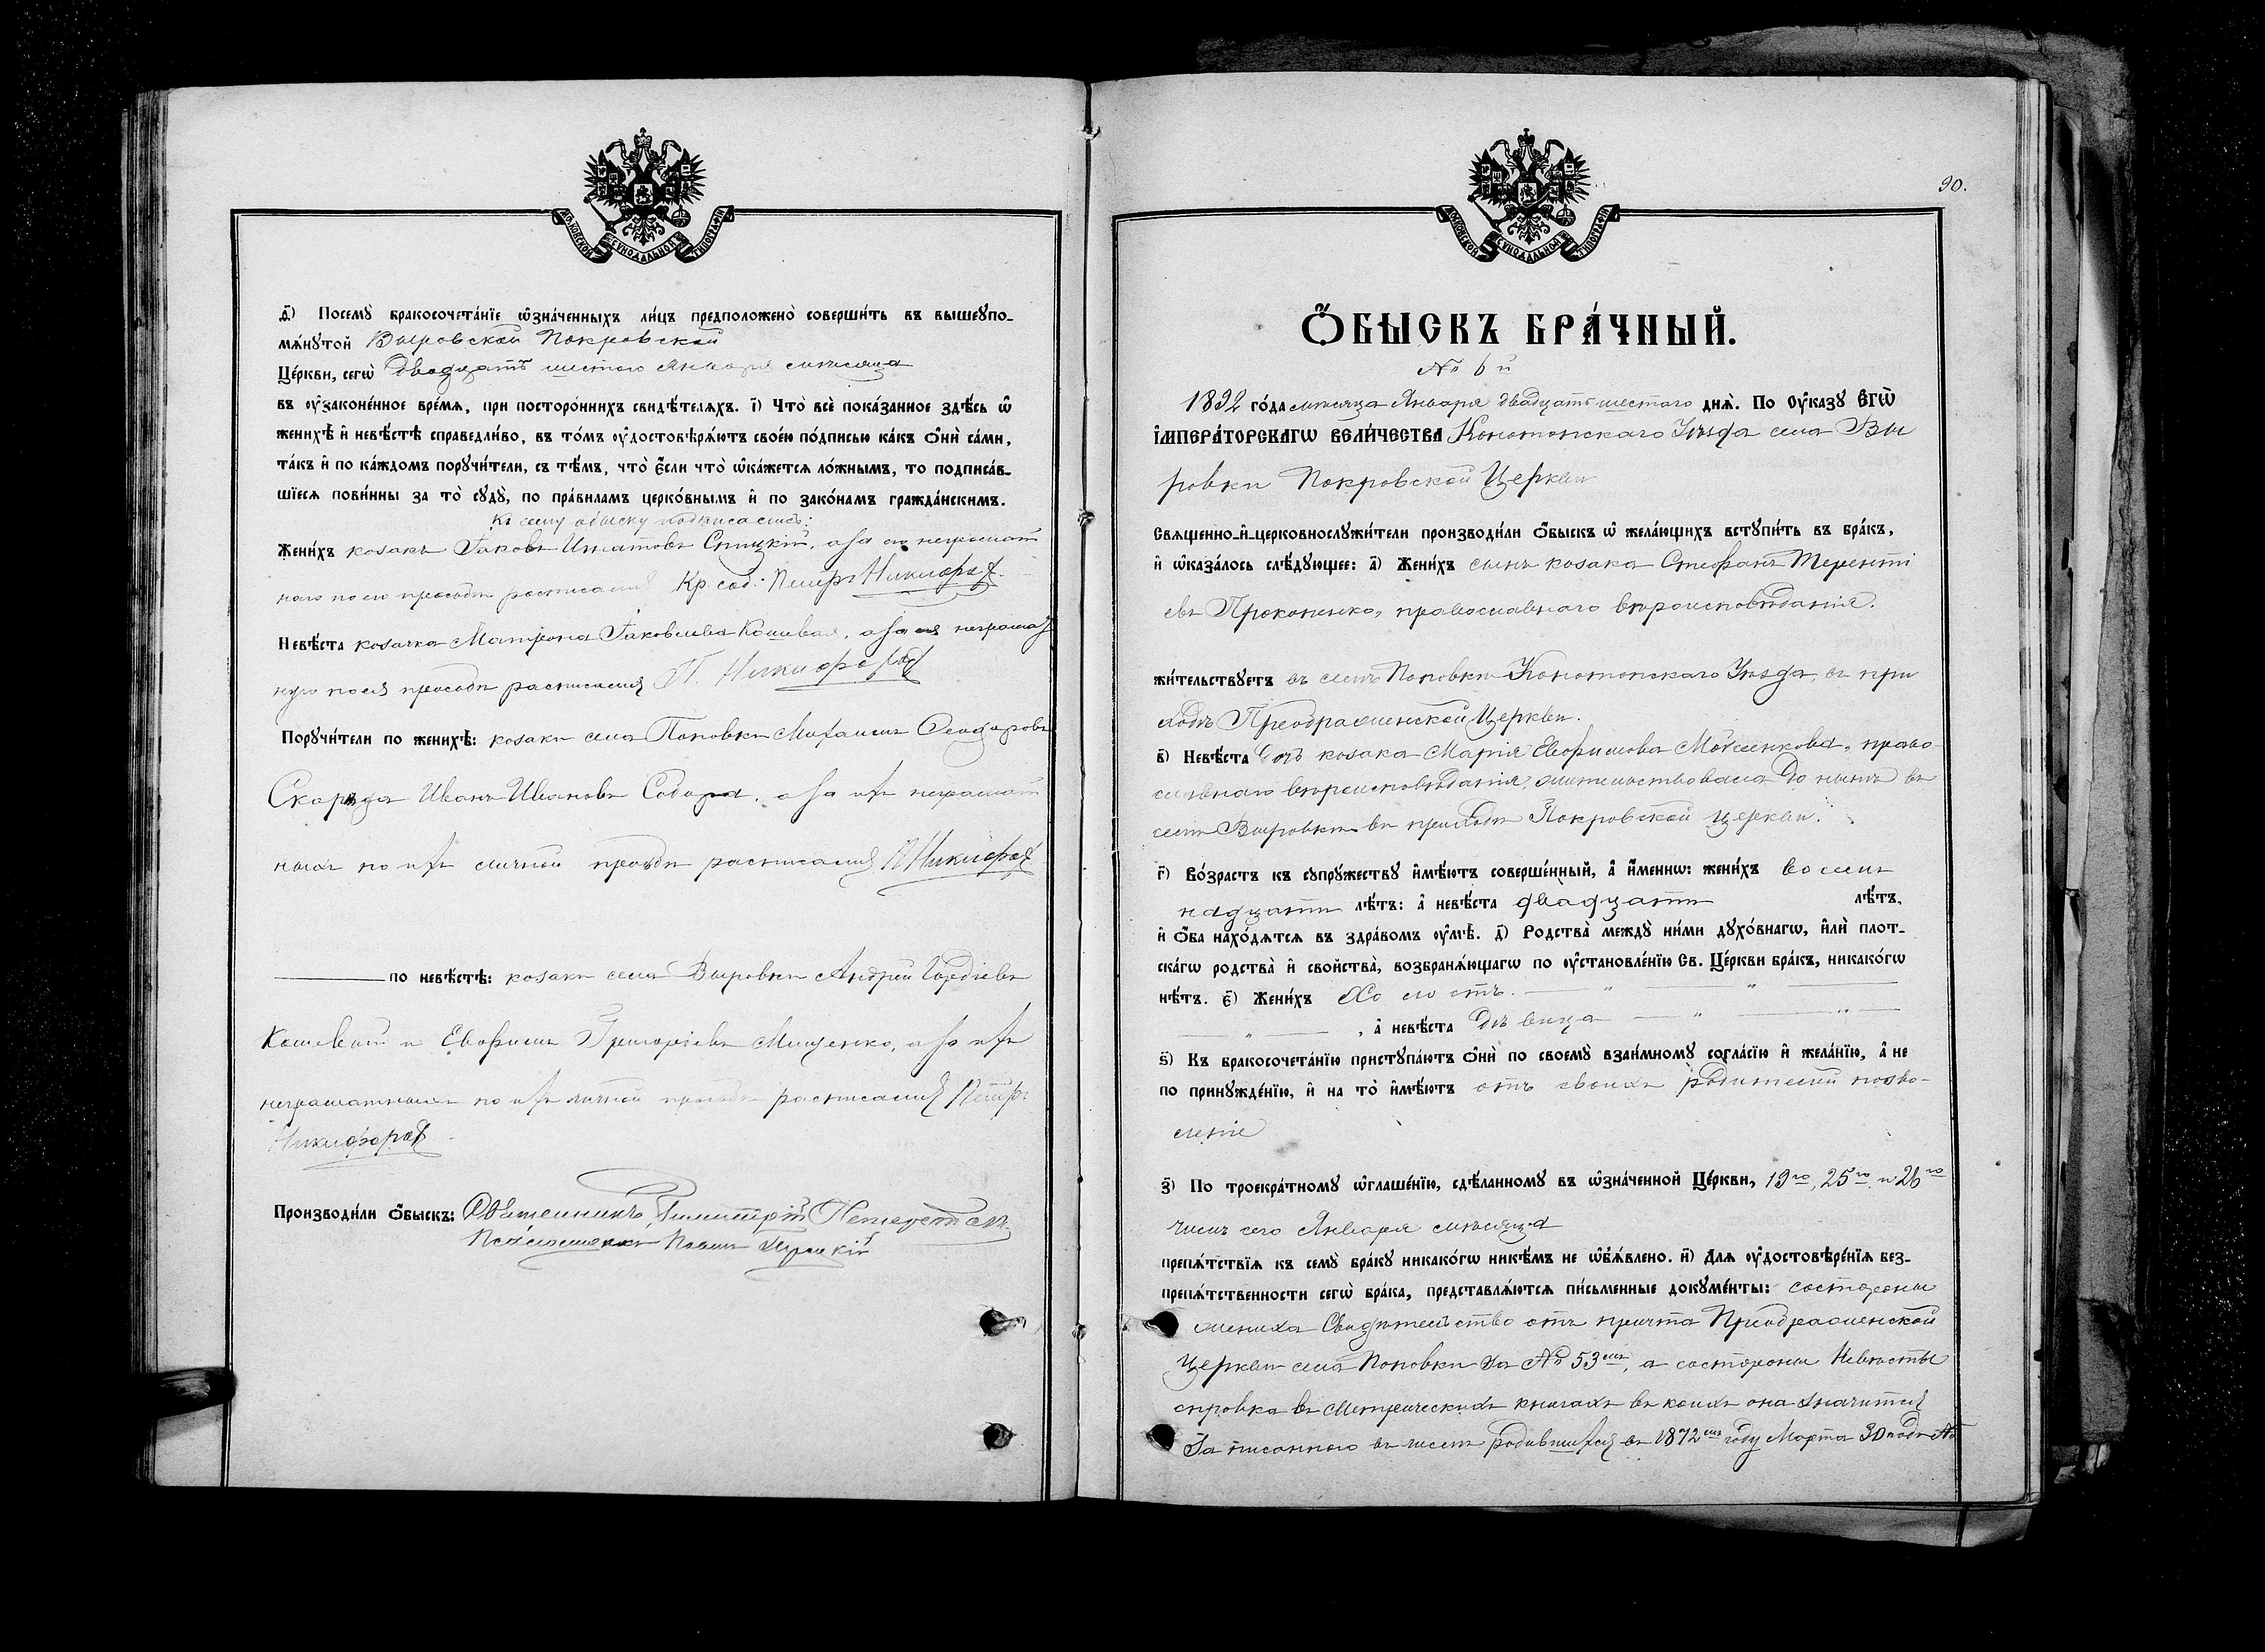 МОСКОВСКОЙ СѴНОДАЛЬНОЙ ТИПОГРАФІИ
ѳ҃) Посемꙋ̀ бракосочета́нїе ѡ҆зна́ченныхъ ли́цъ предположено̀ соверши́ть въ вышеꙋпо-
мѧ́нꙋтой Выровской Покровской
Це́ркви, сегѡ̀ двадцать шестого Января мѣсяца
въ ᲂу҆зако́ненное вре́мѧ, при посторо́ннихъ свидѣ́телѧхъ. і҃) Что̀ всѐ пока́занное здѣ́сь ѡ҆
женихѣ̀ и҆ невѣ́стѣ справедли́во, въ то́мъ ᲂу҆достовѣрѧ́ютъ свое́ю по́дписью ка́къ ѻ҆нѝ са́ми,
та́къ и҆ по ка́ждомъ порꙋчи́тели, съ тѣ́мъ, что̀ є҆́сли что̀ ѡ҆ка́жетсѧ ло́жнымъ, то подписа́в-
шїесѧ пови́нны за то̀ сꙋдꙋ̀, по пра́виламъ церко́внымъ и҆ по зако́намъ гражда́нскимъ.
Къ сему обыску подписались:
Жени́хъ козакъ Іаковъ Игнатовъ Спицкій, а за его неграмот
наго по его просьбѣ росписался Кр. соб. Петръ Никифоров
Невѣ́ста козачка Матрона Іаковлева Кошевая, а за ея неграмот
ную по ея просьбѣ росписался П. Никифоров
Порꙋчи́тели по женихѣ̀: козаки села Поповки Михаилъ Феодоровъ
Иванъ Ивановъ а за ихъ неграмот
ныхъ по ихъ личной просьбѣ росписался П Никифоров
по невѣ́стѣ: козаки села Выровки Андрей Гордіевъ
Кошевой и Евфимъ Григоріевъ Мищенко, а за ихъ
неграмотныхъ по ихъ личной просьбѣ росписался Петръ
Никифоров
Производи́ли ѻ҆́быскъ: Священникъ Димитрій
Псаломщикъ Павелъ
90.
МОСКОВСКОЙ СѴНОДАЛЬНОЙ ТИПОГРАФІИ
Ѻ҆́БЫСКЪ БРА́ЧНЫЙ.
№ 6й
1892 го́да мѣсяца Января двадцать шестого днѧ̀. По Ѹ҆ка́зꙋ ЄГѠ̀
І҆МПЕРА́ТОРСКАГѠ ВЕЛИ́ЧЕСТВА Конотопскаго Уѣзда села Вы
ровки Покровской Церкви
Свѧще́нно-и҆-церковнослꙋжи́тели производи́ли ѻ҆́быскъ ѡ҆ жела́ющихъ встꙋпи́ть въ бра́къ,
и҆ ѡ҆каза́лось слѣ́дꙋющее: а҃) Жени́хъ сынъ козака Стефанъ Терентіе
евъ Прокопенко, православнаго вѣроисповѣданія.
жи́тельствꙋетъ въ селѣ Поповки Конотопскаго Уѣзда, въ при
ходѣ Преображенской Церкви.
в҃) Невѣ́ста Дочь козака Марія Евфимова Мойсенкова, право-
славнаго вѣроисповѣданія, жительствовала до нынѣ въ
селѣ Выровкѣ въ приходѣ Покровской церкви.
г҃) Во́зрастъ къ сꙋпрꙋ́жествꙋ и҆мѣ́ютъ соверше́нный, а҆ и҆́менно: жени́хъ восем
надцати лѣ́тъ: а҆ невѣ́ста двадцати лѣ́тъ,
и҆ ѻ҆́ба нахо́дѧтсѧ въ здра́вомъ ᲂу҆мѣ̀. д҃) Родства̀ междꙋ̀ ни́ми дꙋхо́внагѡ, и҆лѝ плот-
ска́гѡ родства̀ и҆ свойства̀, возбранѧ́ющагѡ по ᲂу҆становле́нїю Св. Це́ркви бра́къ, никако́гѡ
нѣ́тъ. є҃) Жени́хъ Холостъ.
, а҆ невѣ́ста дѣвица
ѕ҃) Къ бракосочета́нїю пристꙋпа́ютъ ѻ҆нѝ по своемꙋ̀ взаи́мномꙋ согла́сїю и҆ жела́нїю, а҆ не
по принꙋжде́нїю, и҆ на то̀ и҆мѣ́ютъ отъ своихъ родителей позво-
леніе
з҃) По троекра́тномꙋ ѡ҆глаше́нїю, сдѣ́ланномꙋ въ ѡ҆зна́ченной Це́ркви, 19го, 25го и 26го
числъ сего Января мѣсяца
препѧ́тствїѧ къ семꙋ̀ бра́кꙋ никако́гѡ никѣ́мъ не ѡ҆б̾ѧ́влено. и҃) Длѧ ᲂу҆достовѣре́нїѧ без-
препѧ́тственности сегѡ̀ бра́ка, представлѧ́ютсѧ пи́сьменные докꙋме́нты: состороны
жениха Свидѣтельство отъ причта Преображенской
Церкви села Поповки за № 53мъ, а состороны Невѣсты
справка въ Метрическихъ книгахъ въ коихъ она значится
Записанною въ числѣ родившихся въ 1872мъ году Марта 30 подъ №